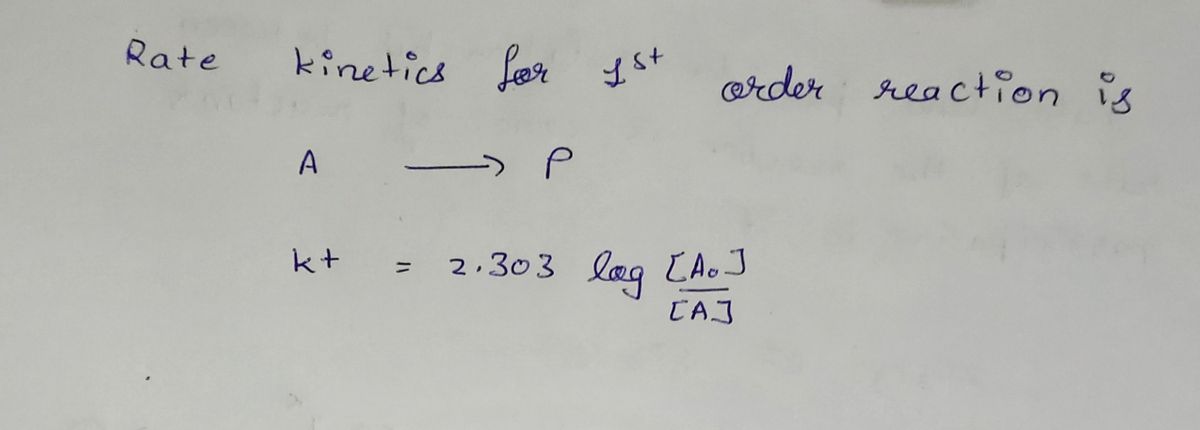 Rate kinetics for 1st order reaction is
A → P
kt = 2.303 log [A₀]/[A]